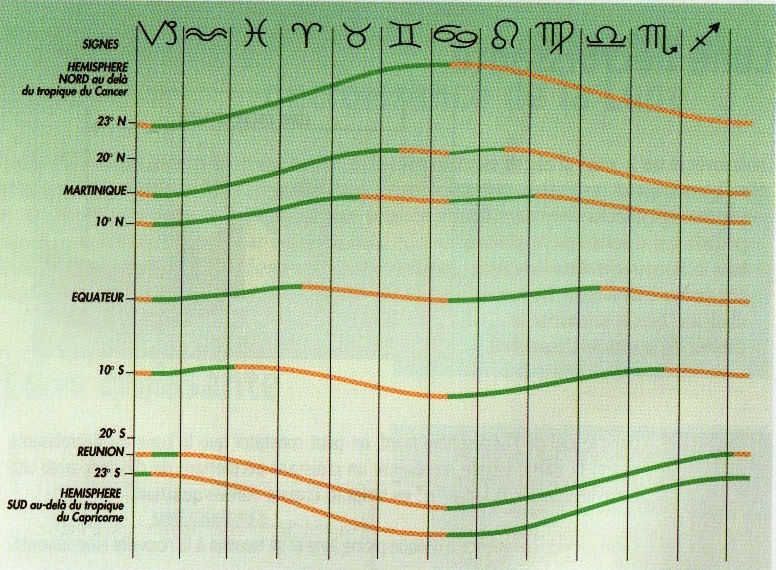 SIGNES ♑ ♒ ♓ ♈ ♉ ♊ ♋ ♌ ♍ ♎ ♏ ♐
HEMISPHERE
NORD au delà
du tropique du Cancer
23° N
20° N
MARTINIQUE
10° N
EQUATEUR
10° S
20° S
REUNION
23° S
HEMISPHERE
SUD au-delà du tropique
du Capricorne